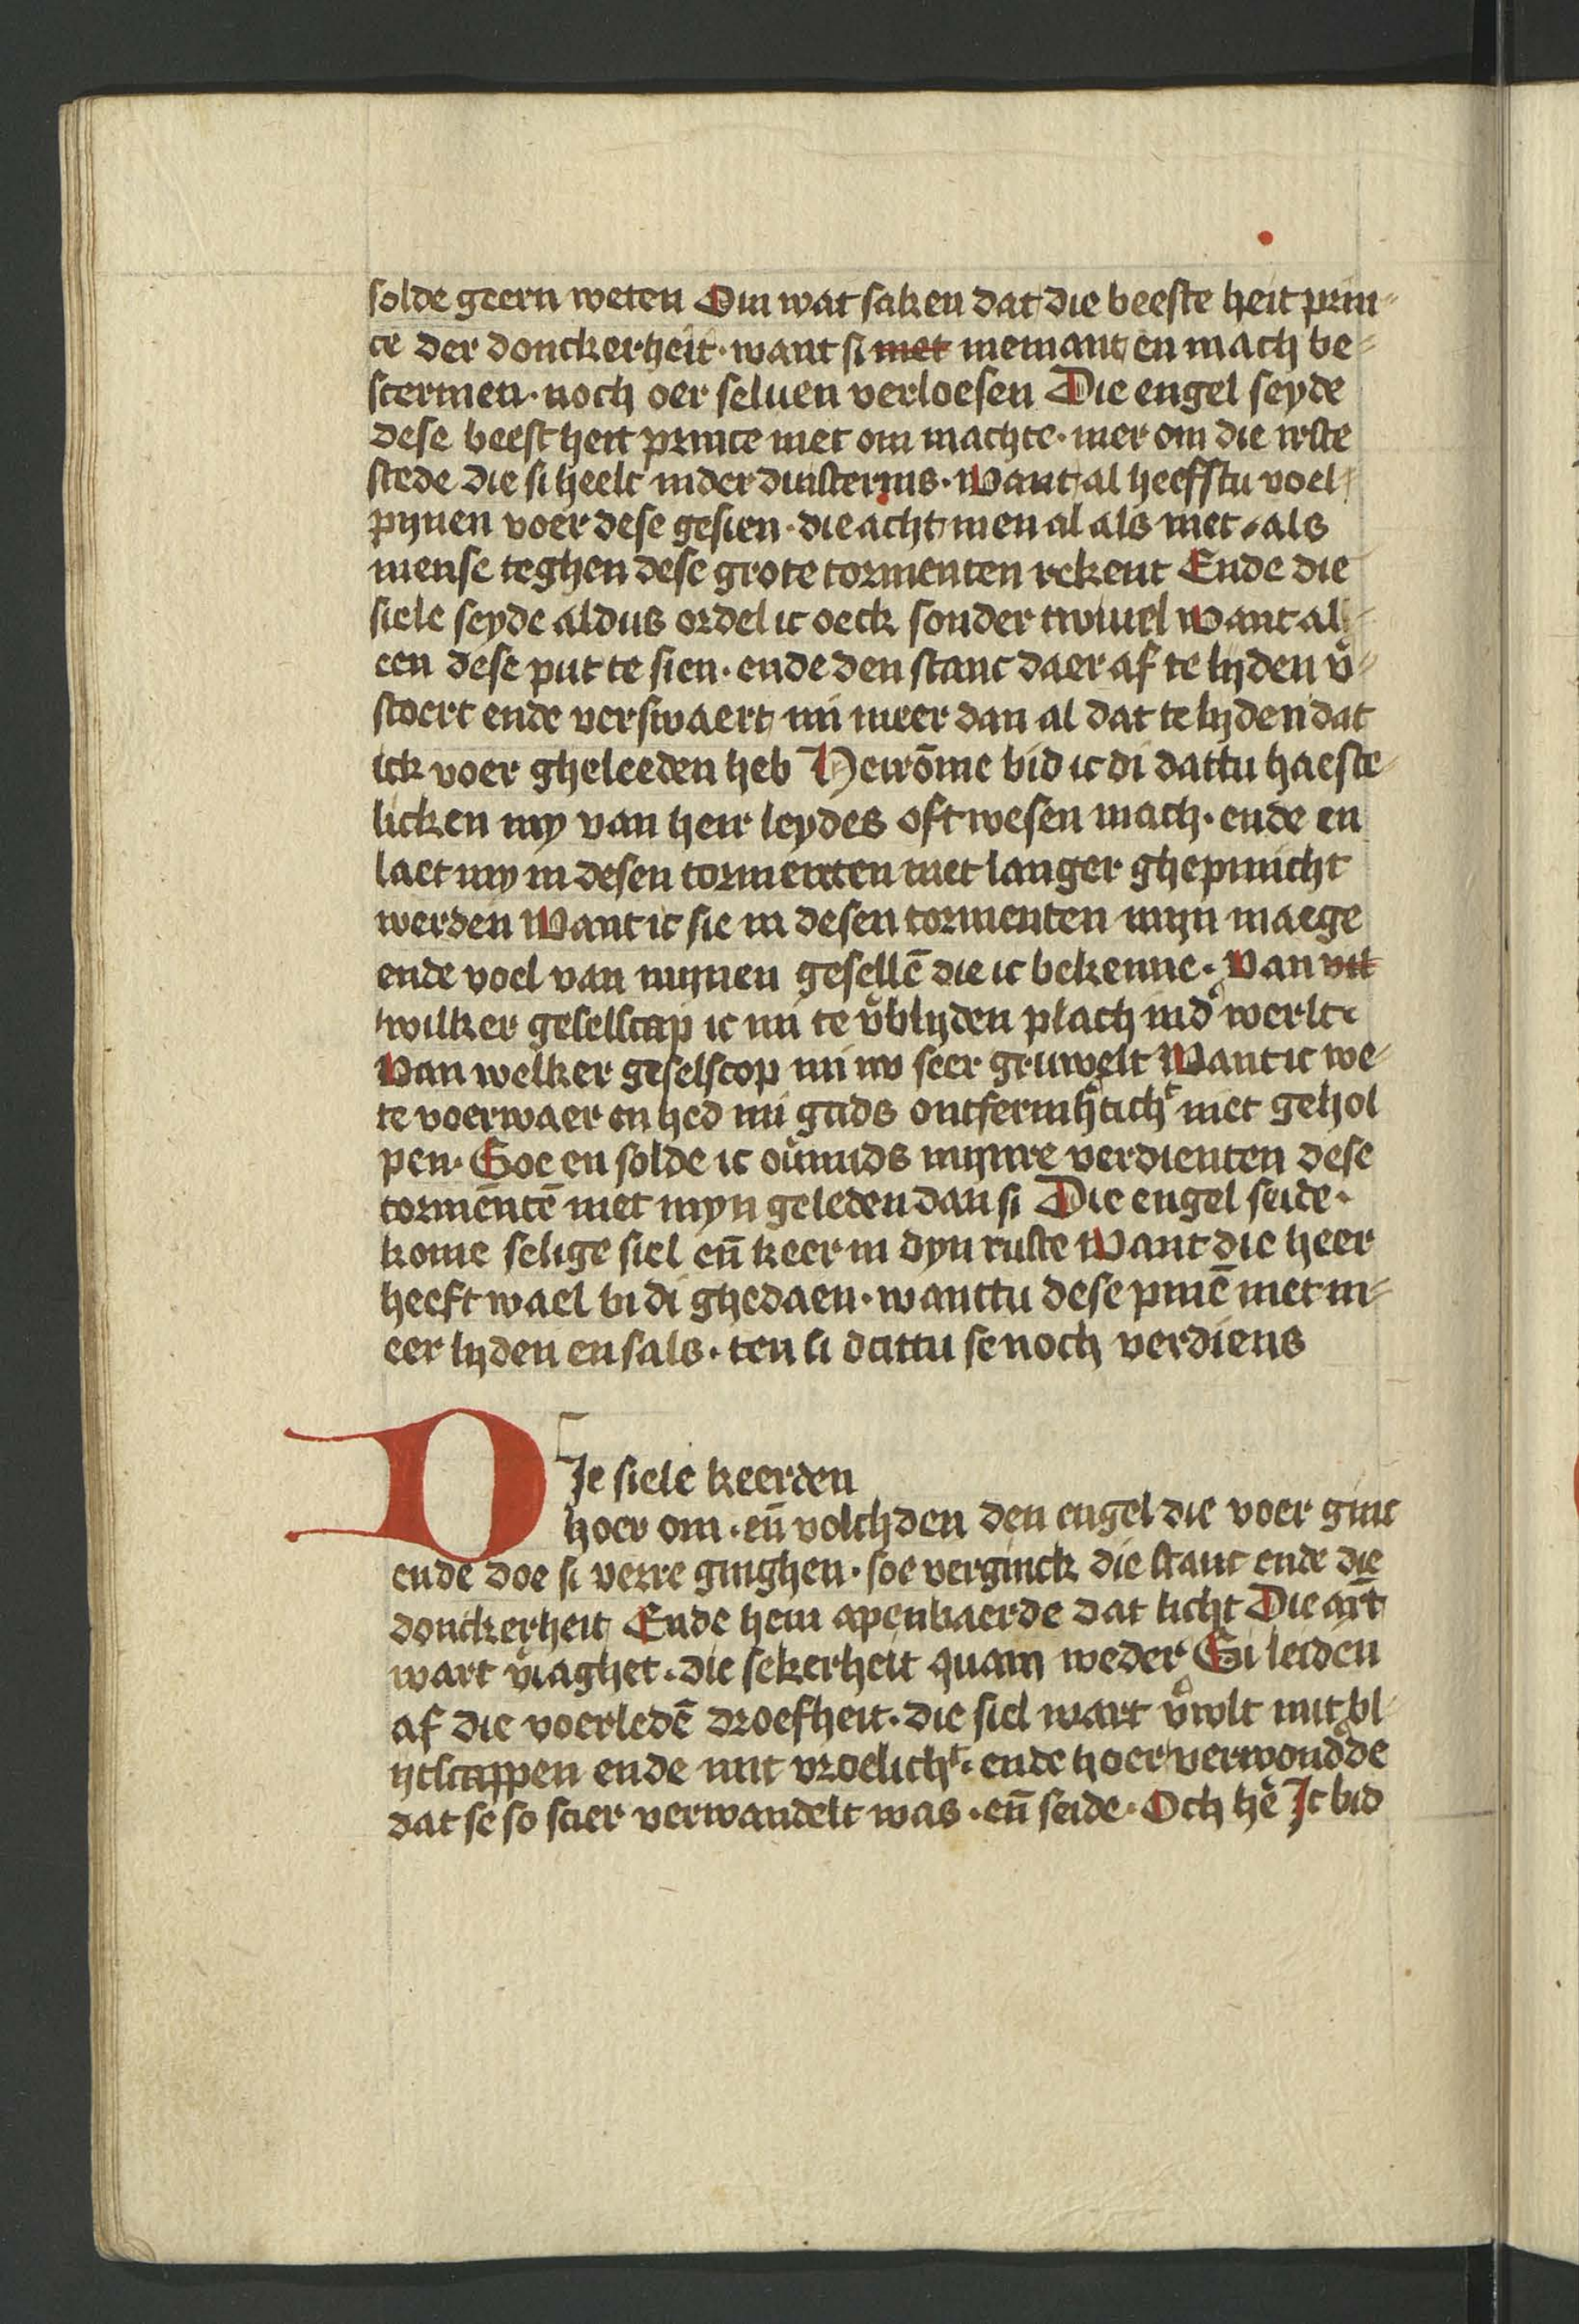 solde geern weten Om wat saken dat die beeste heit prin-
ce der donckerheit · want si niet niemant en mach be-
scermen · noch oer seluen verloesen Die engel seyde
dese beest heit prince niet om machte · mer om die irste
stede die si heelt inder duisternis · Want al heefstu voel
pijnen voer dese gesien · die acht men al als niet · als
mense teghen dese grote tormenten rekent Ende die
siele seyde aldus ordel ic oeck sonder twiuel Want all-
een dese put te sien · ende den stanc daer af te lijden v̄-
stoert ende verswaert mi meer dan al dat te lijden dat
ick voer gheleeden heb Heirōme bid ic di dattu haeste-
licken my van heir leydes oft wesen mach · ende en
laet my in desen tormenten niet langer ghepinicht
werden Want ic sie in desen tormenten mijn maege
ende voel van mijnen gesellē die ic bekenne · Van wil
wilker geselscap ic mi te v̄blijden plach ind̄ werlt
Van welker geselscop mi nv seer gruwelt Want ic we-
te voerwaer en hed mi gads ontfermh̄ticht̄ niet gehol
pen · Soe en solde ic ou̅mids mijnre verdienten dese
tormentē niet myn geleden dan si Die engel seide ·
kome selige siel en̄ keer in dyn ruste Want die heer
heeft wael bi di ghedaen · wanttu dese pinē niet m-
eer lijden en sals · ten si dattu se noch verdiens
DIe siele keerden
hoer om · en̄ volchden den engel die voer ginc
ende doe si verre ginghen · soe verginck die stanc ende die
donckerheit Ende hem apenbaerde dat licht Die anxt
wart v̄iaghet · die sekerheit quam weder Si leiden
af die voerledē droefheit · die siel wart v̄wlt mit bl-
ijtscappen ende mit vroelich̄t · ende hoer verwondde
dat se so scier verwandelt was · en̄ seide · Och hē Ic bid